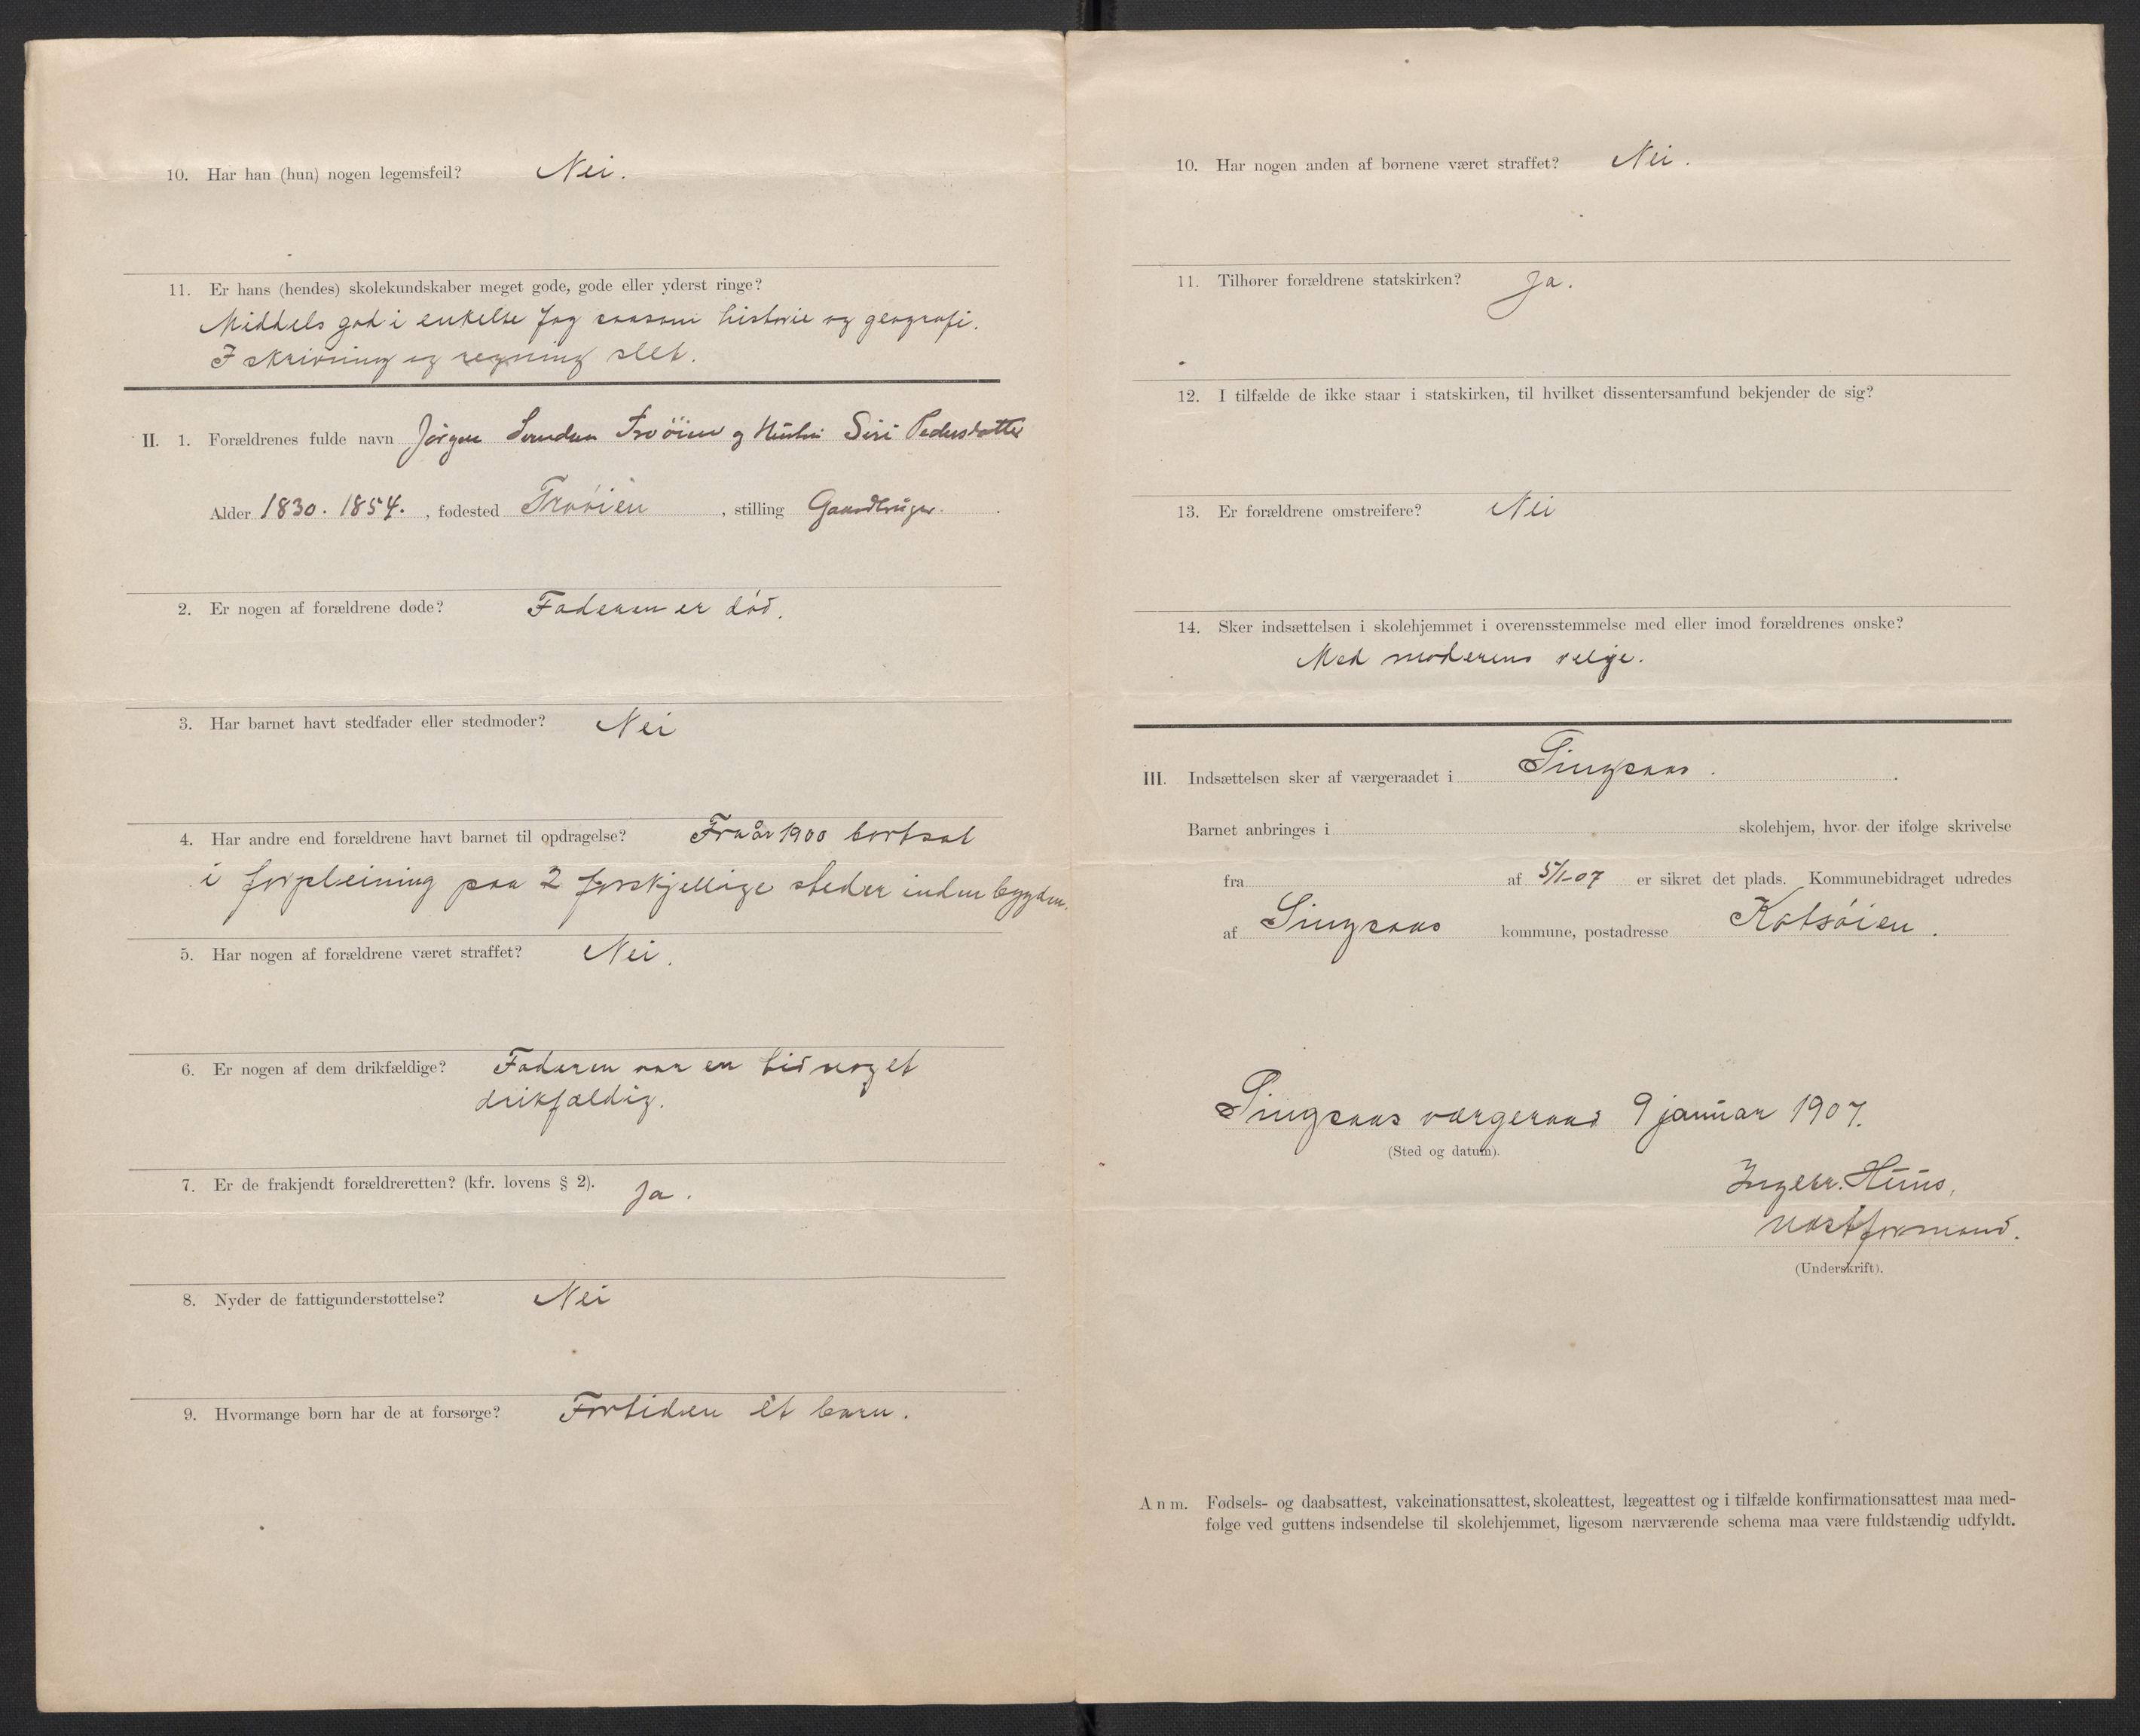 10. Har han (hun) nogen legemsfeil? Nei.
11. Er hans (hendes) skolekundskaber meget gode, gode eller yderst ringe?
Middels god i enkelte fag saasom historie og geografi.
I skrivning og regning slet.
II. 1. Forældrenes fulde navn Jörgen Svendsen Troöien og Hustru Siri Pedersdatter
Alder 1830. 1854. , fødested Troöien , stilling Gaardbruger.
2. Er nogen af forældrene døde? Faderen er død.
3. Har barnet havt stedfader eller stedmoder? Nei
4. Har andre end forældrene havt barnet til opdragelse? Fra år 1900 bortsat
i forpleining paa 2 forskjellige steder inden bygden.
5. Har nogen af forældrene været straffet? Nei.
6. Er nogen af dem drikfældige? Faderen var en tid noget
drikfældig.
7. Er de frakjendt forældreretten? (kfr. lovens § 2). Ja.
8. Nyder de fattigunderstøttelse? Nei
9. Hvormange børn har de at forsørge? Fortiden ét barn.
10. Har nogen anden af børnene været straffet? Nei.
11. Tilhører forældrene statskirken? Ja.
12. I tilfælde de ikke staar i statskirken, til hvilket dissentersamfund bekjender de sig?
13. Er forældrene omstreifere? Nei
14. Sker indsættelsen i skolehjemmet i overensstemmelse med eller imod forældrenes ønske?
Med moderens velje.
III. Indsættelsen sker af værgeraadet i Singsaas.
Barnet anbringes i skolehjem, hvor der ifølge skrivelse
fra af 5/1-07 er sikret det plads. Kommunebidraget udredes
af Singsaas kommune, postadresse Kotsöien.
Singsaas værgeraad 9 januar 1907.
(Sted og datum).
Ingebr. Huus,
næstformand.
(Underskrift).
Anm. Fødsels- og daabsattest, vakcinationsattest, skoleattest, lægeattest og i tilfælde konfirmationsattest maa med-
følge ved guttens indsendelse til skolehjemmet, ligesom nærværende schema maa være fuldstændig udfyldt.